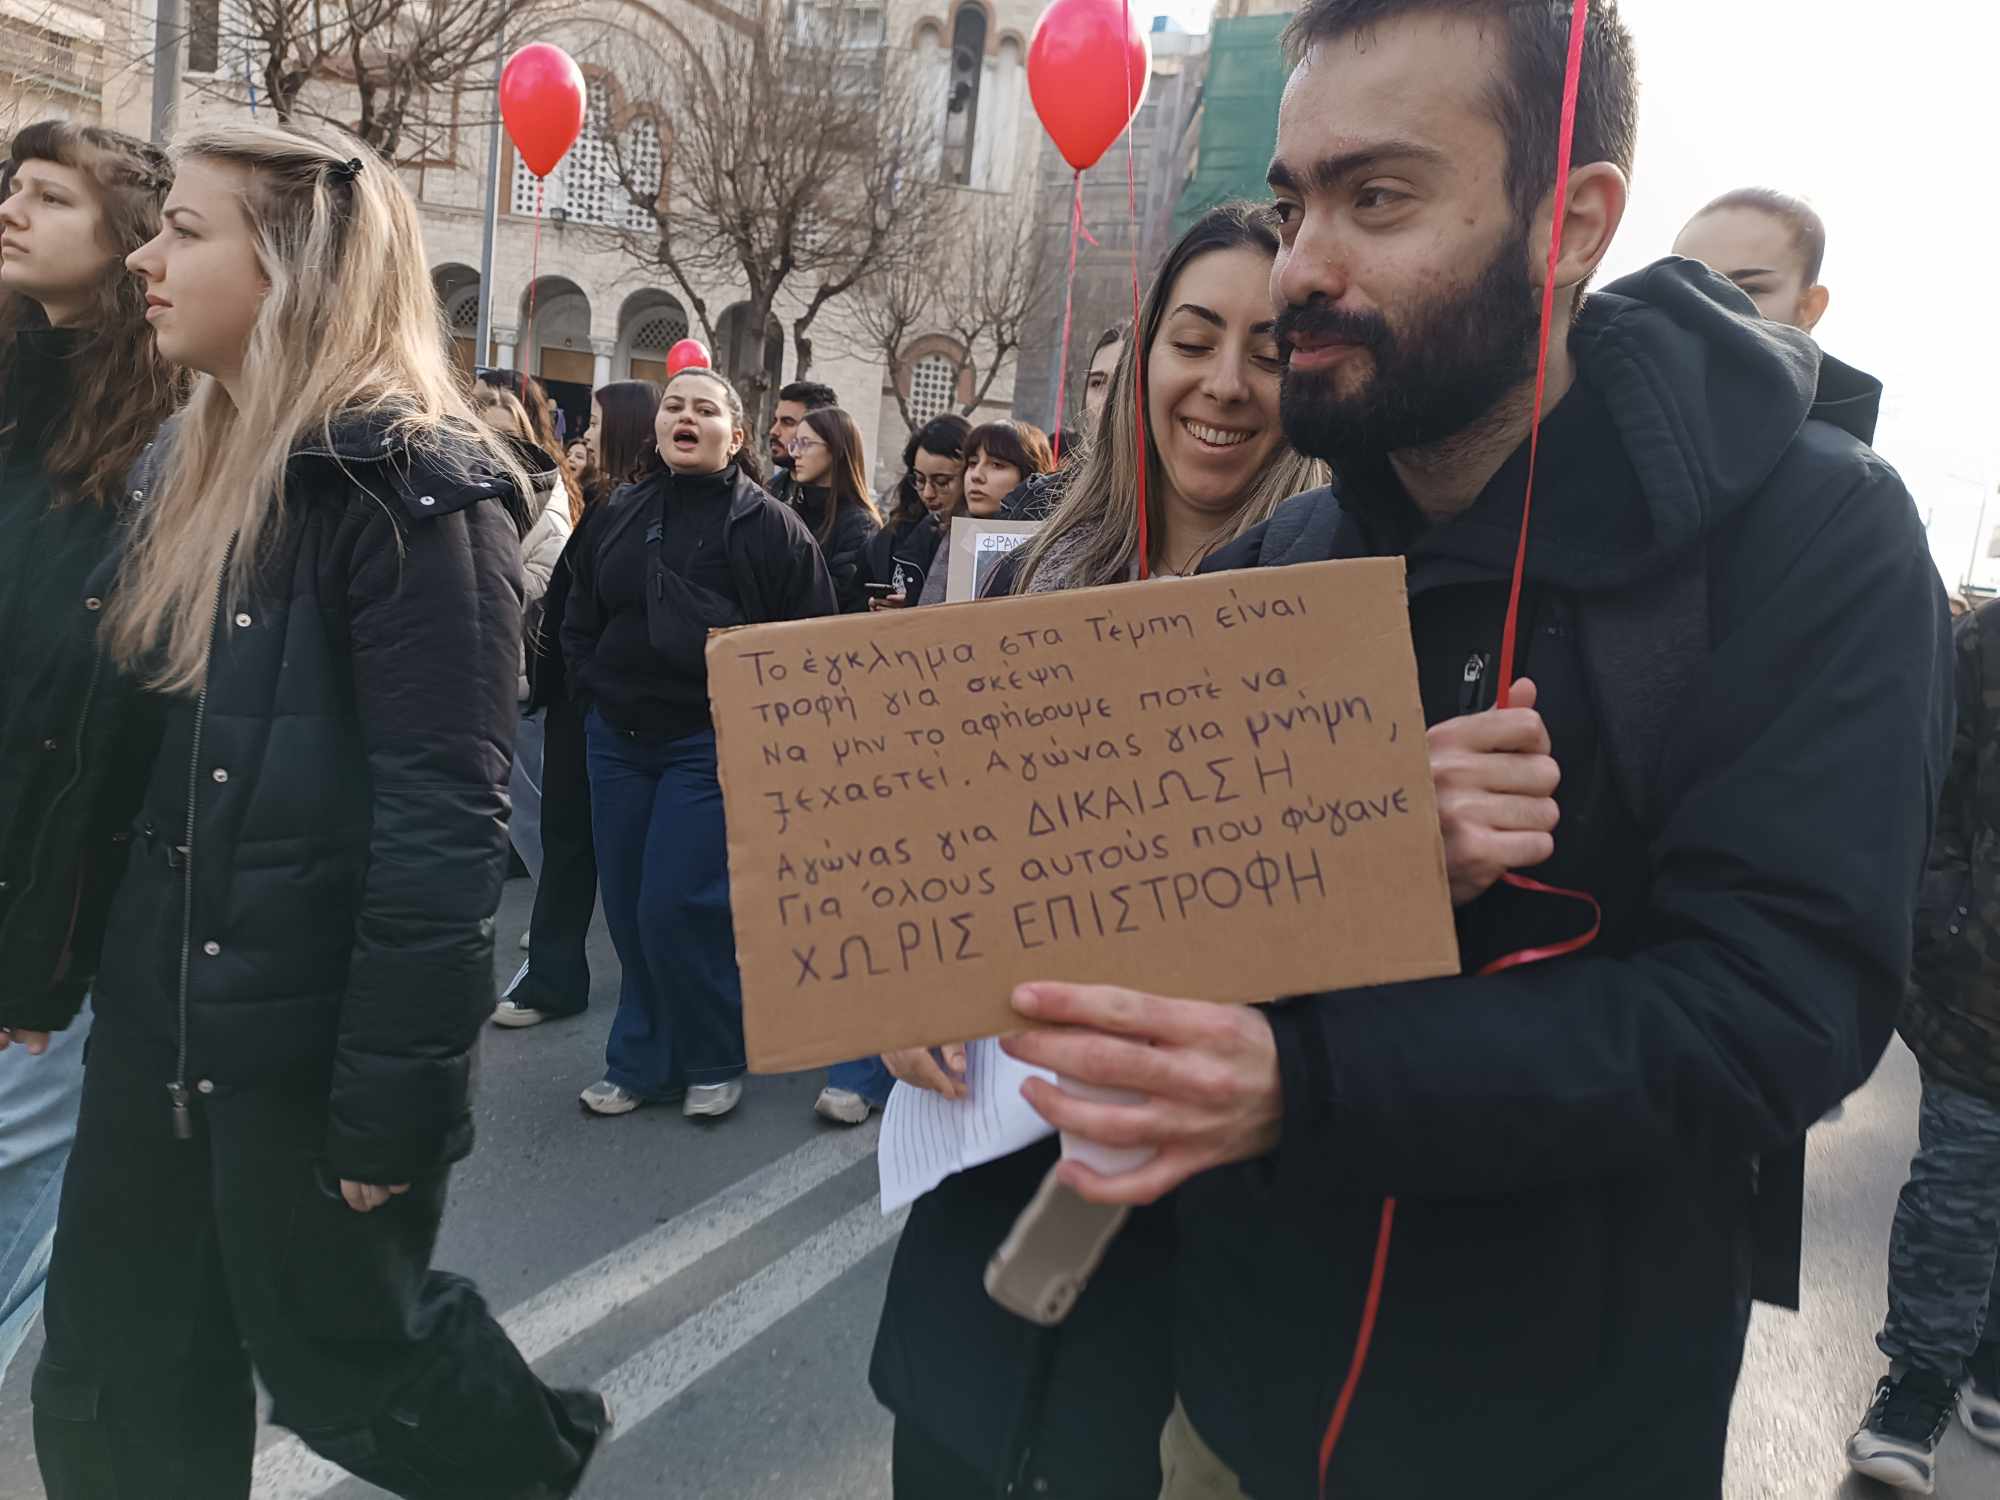 Το έγκλημα στα Τέμπη είναι
τροφή για σκέψη
Να μην το αφήσουμε ποτέ να
ξεχαστεί. Αγώνας για μνήμη,
Αγώνας για ΔΙΚΑΙΩΣΗ
Για όλους αυτούς που φύγανε
ΧΩΡΙΣ ΕΠΙΣΤΡΟΦΗ